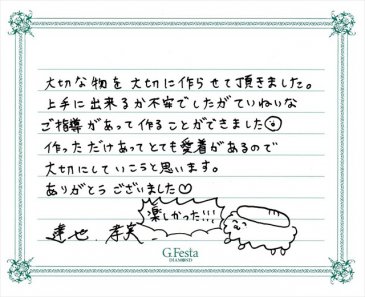 大切な物を大切に作らせて頂きました。
上手に出来るか不安でしたがていねいな
ご指導があって作ることができました
作っただけあってとても愛着があるので
大切にしていこうと思います。
ありがとうございました♡
楽しかった!!!
達也、孝実
G.Festa
DIAMOND